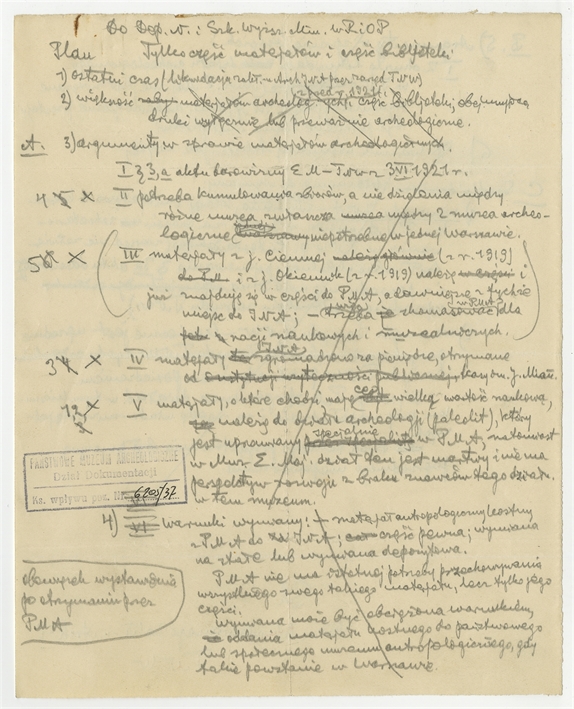 Do Dep. N. i Szk. Wyższ. Min. WRiOP
Plan Tylko część materjałów i część bibljoteki
1) ostatni czas (likwidacja zakł. Arch. przez zarząd TNW)
2) większość materjałów archeolog. i część bibljoteki, obejmująca
druki wyłącznie lub przeważnie archeologiczne.
A. 3) argumenty w sprawie materjałów archeologicznych.
I § 3, a aktu darowizny E. M. - TNW z 3 VI 1921 r.
4 X II potrzeba kumulowania zbiorów, a nie dzielenia między
różne muzea, zwłaszcza między 2 muzea archeo-
logiczne niepotrzebne w jednej Warszawie.
5 X III materjały z j. Ciemnej (z r. 1919)
i z j. Okiennik (z r. 1919) należą i
już znajdują się w części do PMA, a dawniejsze z tychże
miejsc do INA; - trzeba skomasować w PMA dla
racji naukowych i muzealniczych.
3 X IV materjały INA zgromadzono za pieniądze, otrzymane
od instytucji użyteczności publicznej, Kasy im. J. Mian.
X V materjały, o które chodzi mają wielką wartość naukową,
należą do działu archeologji (paleolit), który
jest uprawiany specjalnie w PMA, natomiast
w Muz. E. Maj. dział ten jest martwy i nie ma
perspektyw rozwoju z braku znawców tego działu
w tem muzeum.
PAŃSTWOWE MUZEUM ARCHEOLOGICZNE
Dział Dokumentacji
Ks. wpływu poz. 6205/37
4) VI warunki wymiany: - materjał antropologiczny kostny
z PMA do INA; część pewna; wymiana
na stałe lub wymiana depozytowa.
PMA nie ma istotnej potrzeby przechowywania
wszystkiego swego takiego materjału, lecz tylko jego
części.
Wymiana może być obciążona warunkiem
oddania materjału kostnego do państwowego
lub społecznego muzeum antropologicznego, gdy
takie powstanie w Warszawie.
obowiązek wystawienia
po otrzymaniu przez
PMA